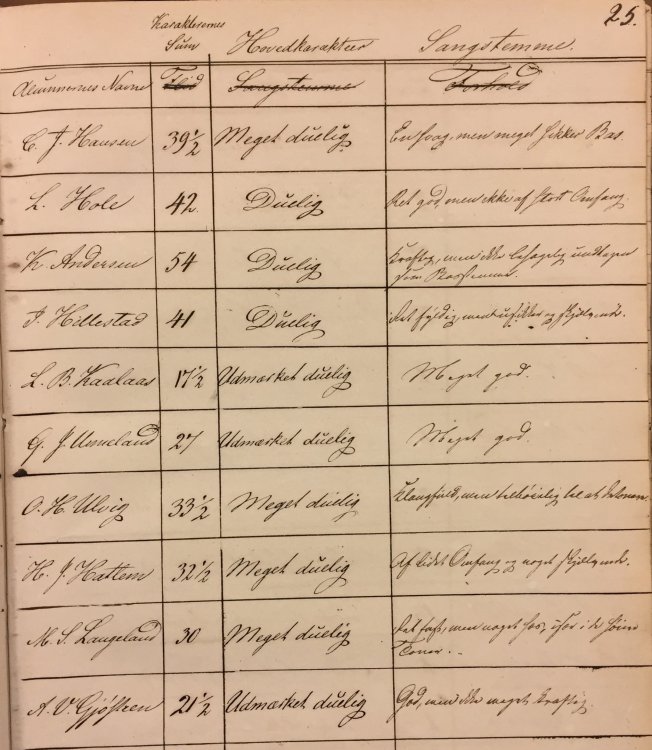 25.
Karakterernes
Sum Hovedkarakteer Sangstemme.
Alumnernes Navne Flid Sangstemme Forhold
C. J. Hansen 39½ Meget duelig En svag, men meget sikker Bas.
L. Hole 42 Duelig Ret god, men ikke af stort Omfang.
K. Andersen 54 Duelig Kraftig, men ikke behagelig undtagen
som Basstemme.
J. Hillestad 41 Duelig Ret fyldig, men usikker og skjælvende.
L. B. Kaalaas 17½ Udmærket duelig Meget god.
G. J. Unneland 27 Udmærket duelig Meget god.
O. H. Ulvig 33½ Meget duelig Klangfuld, men tilbøielig til at detonere.
H. J. Hattem 32½ Meget duelig Af lidet Omfang og noget skjælvende.
M. S. Langeland 30 Meget duelig Ret men noget især i de høiere
Toner.
A. V. Gjøsteen 21½ Udmærket duelig God, men ikke meget kraftig.